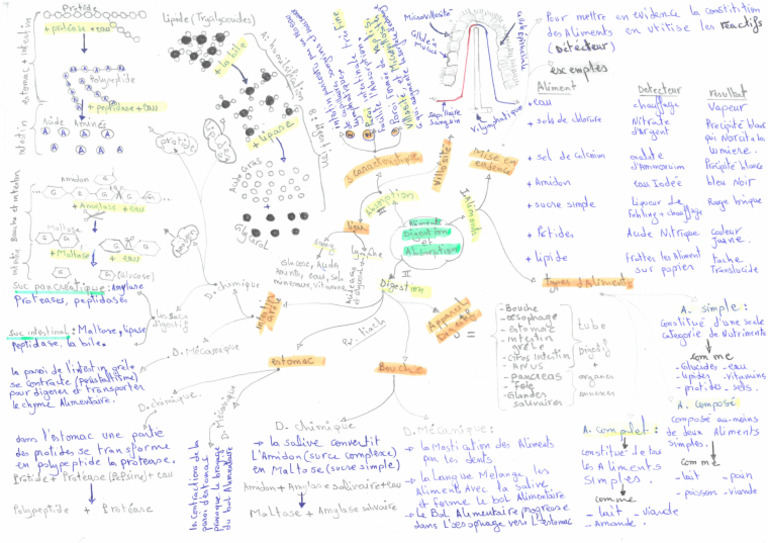 Protide
+ protéase + eau
Polypeptide
+ peptidase + Eau
Acide Aminés
estomac + intestin
intestin
protide
Lipide (Triglycérides)
+ la bile
A: humidification
B: digestion
+ Lipase
Acide Gras
Glycérol
Amidon
+ Amylase + eau
Maltose
+ Maltase + eau
(Glucose)
Bouche et intestin
intestin
Suc pancréatique: Amylase
Proteases, peptidase.
Suc intestinal: Maltase, lipase
Peptidase, la bile.
les sucs digestif
D. chimique
D. Mécanique
la paroi de l'intestin grêle
se contracte (peristaltisme)
pour digérer et transporter
le chyme Alimentaire.
D. chimique.
dans l'estomac une partie
des protides se transforme
en polypeptide la protease.
Protide + Protease (Pepsine) + eau
Polypeptide + Protéase
D. Mécanique
la contractions de la
paroi d'estomac
du bol Alimentaire
intestin grêle
estomac
Bouche
D. chimique
→ la salive convertit
L'Amidon (sucre complexe)
en Maltose (sucre simple)
Amidon + Amylase salivaire + eau
Maltose + Amylase salivaire
D. Mécanique:
→ la Mastication des Aliments
par les dents
→ la Langue Mélange les
Aliments Avec la salive
et forme le bol Alimentaire
→ Le Bol Alimentaire progresse
dans l'œsophage vers L'estomac
Aliments
Digestion
et
Absorption
Digestion
I
II
Absorption
Aliments
3 caractéristiques
Villosités
lieu
sang
lymphe
Glucose, Acide
Aminés, eau, sels
mineraux, vitamine
Microvillosité
Glande à mucus
Cellule épithéliale
Capillaire sanguin
V. lymphatique
Mise en evidence
Pour mettre en evidence la constitution
des Aliments on utilise les Réactifs
(Détecteur)
exemples
Aliment Detecteur resultat
+ eau chauffage Vapeur
+ sels de chlorure Nitrate d'Argent Precipité blanc qui Noircit à la lumiere.
+ sel de Calcium oxalate d'Ammonium Precipité blanc
+ Amidon eau Iodée bleu Noir
+ sucre simple Liqueur de Fehling + chauffage Rouge brique
+ Protides Acide Nitrique Couleur Jaune.
+ lipide Frotter les Aliment sur papier Tache Translucide
Types d'Aliments
Appareil Digestif
- Bouche
- œsophage
- Estomac
- intestin grêle
- Gros intestin
- Anus
- pancréas
- Foie
- Glandes salivaires
tube
Digestif
+
organes
annexes
A. simple:
Constitué d'une seule
categorie de Nutriments
comme
- Glucides - eau
- lipides - vitamins
- protides - sels.
A. composé
composé au-moins
de deux Aliments
simples.
comme
- lait - pain
- poissons - viande
A. Complet:
constitué de tous
les Aliments
Simples.
comme
- lait - viande
- Amande.